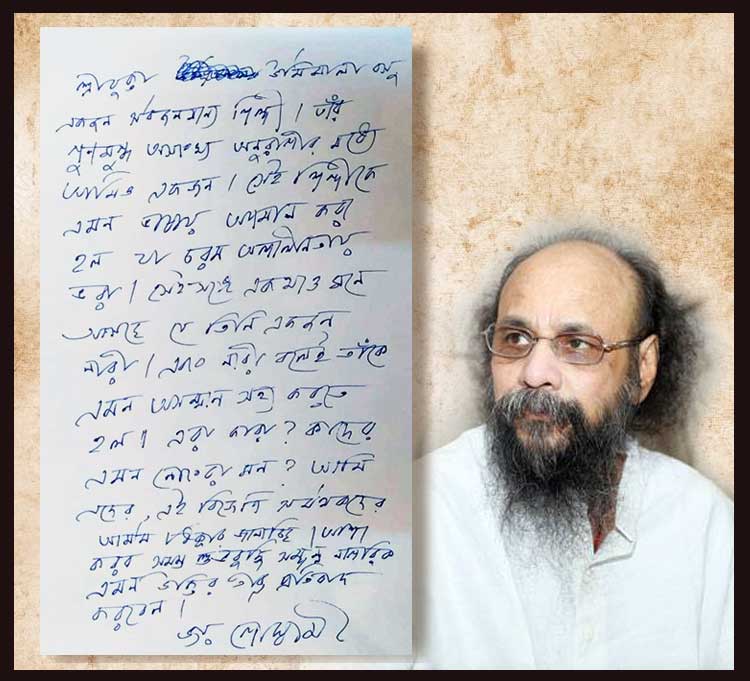 শ্রীযুক্তা ঊর্মিমালা বসু
একজন সর্বজনমান্য শিল্পী। তাঁর
গুণমুগ্ধ অসংখ্য অনুরাগীর মধ্যে
আমিও একজন। সেই শিল্পীকে
এমন ভাষায় অপমান করা
হল যা চরম অশালীনতায়
ভরা। সেইসঙ্গে একথাও মনে
আসছে যে তিনি একজন
নারী। এবং নারী বলেই তাঁকে
এমন অসম্মান সহ্য করতে
হল। এরা কারা? কাদের
এমন নোংরা মন? আমি
এদের, এই বিজেপি সমর্থকদের
আমার ধিক্কার জানাচ্ছি। আশা
করব সমস্ত শুভবুদ্ধি সম্পন্ন নাগরিক
এমন উক্তির তীব্র প্রতিবাদ
করবেন।
জয় গোস্বামী